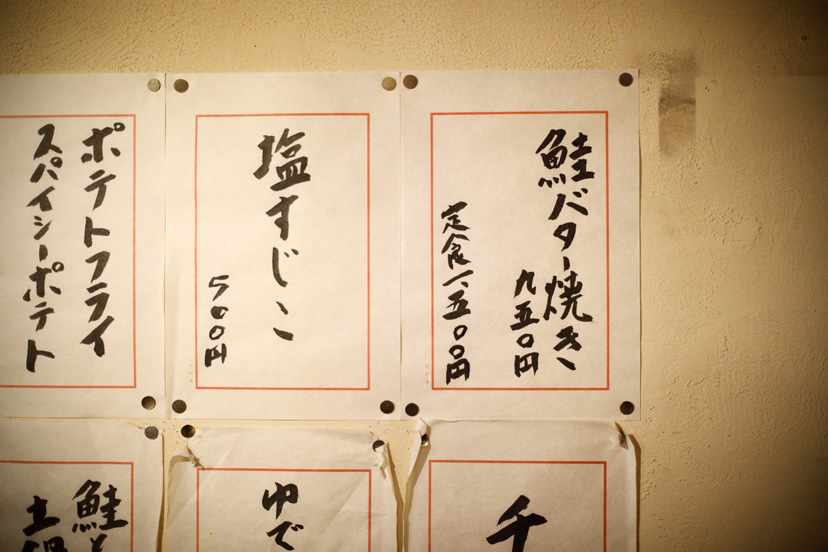 鮭バター焼き
九五〇円
定食一、五〇〇円
塩すじこ
500円
ポテトフライ
スパイシーポテト
千
ゆで
鮭と
土鍋